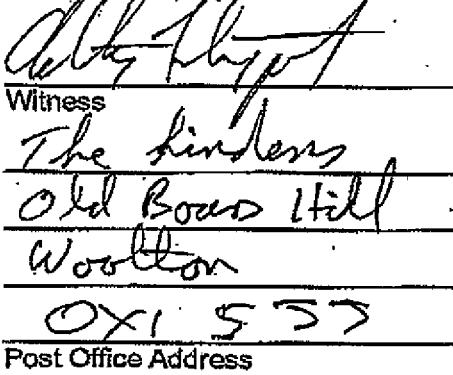 Witness
The Lindens
Old Boars Hill
Wootton
OX1 5JJ
Post Office Address